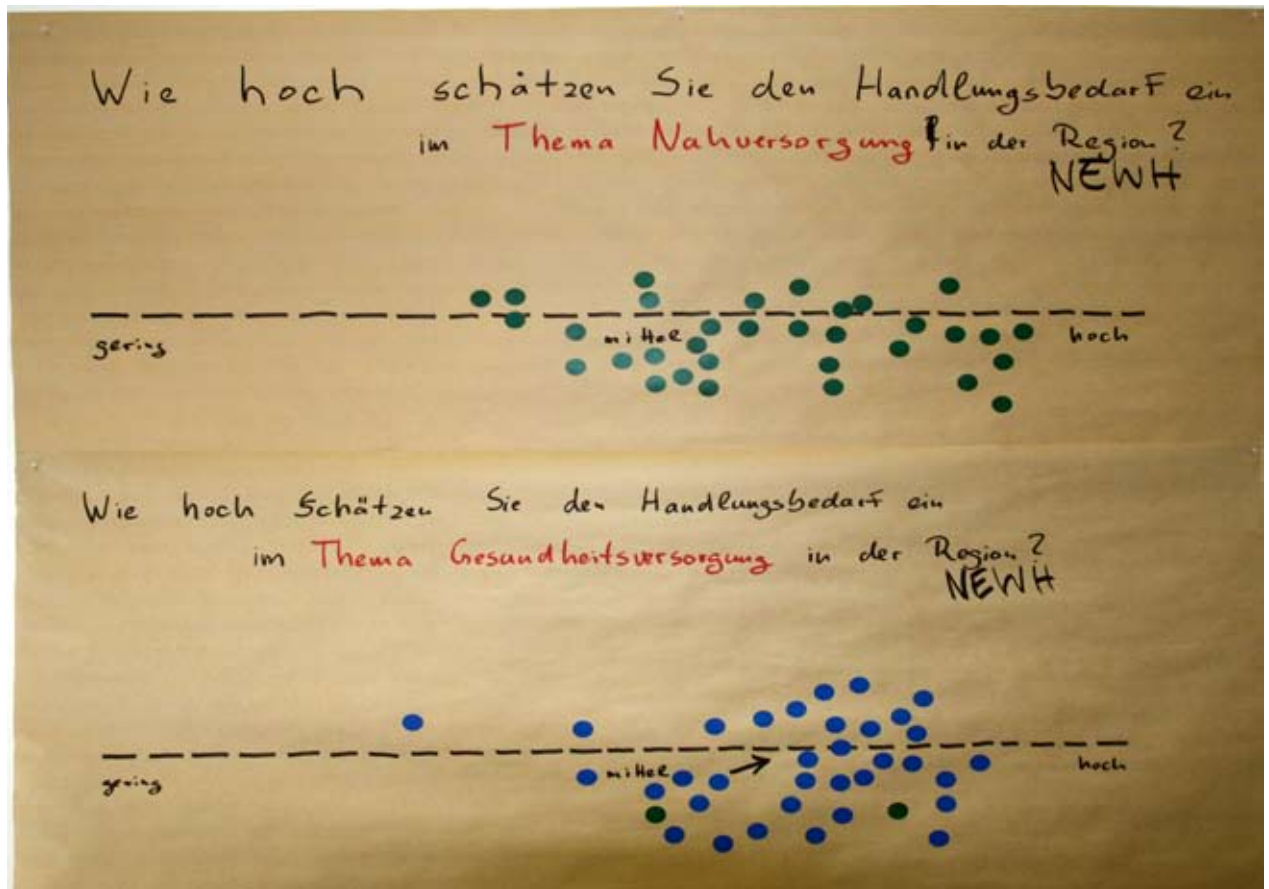 Wie hoch schätzen Sie den Handlungsbedarf ein
im Thema Nahversorgung in der Region?
NEWH
gering mittel hoch
Wie hoch Schätzen Sie den Handlungsbedarf ein
im Thema Gesundheitsversorgung in der Region?
NEWH
gering mittel hoch